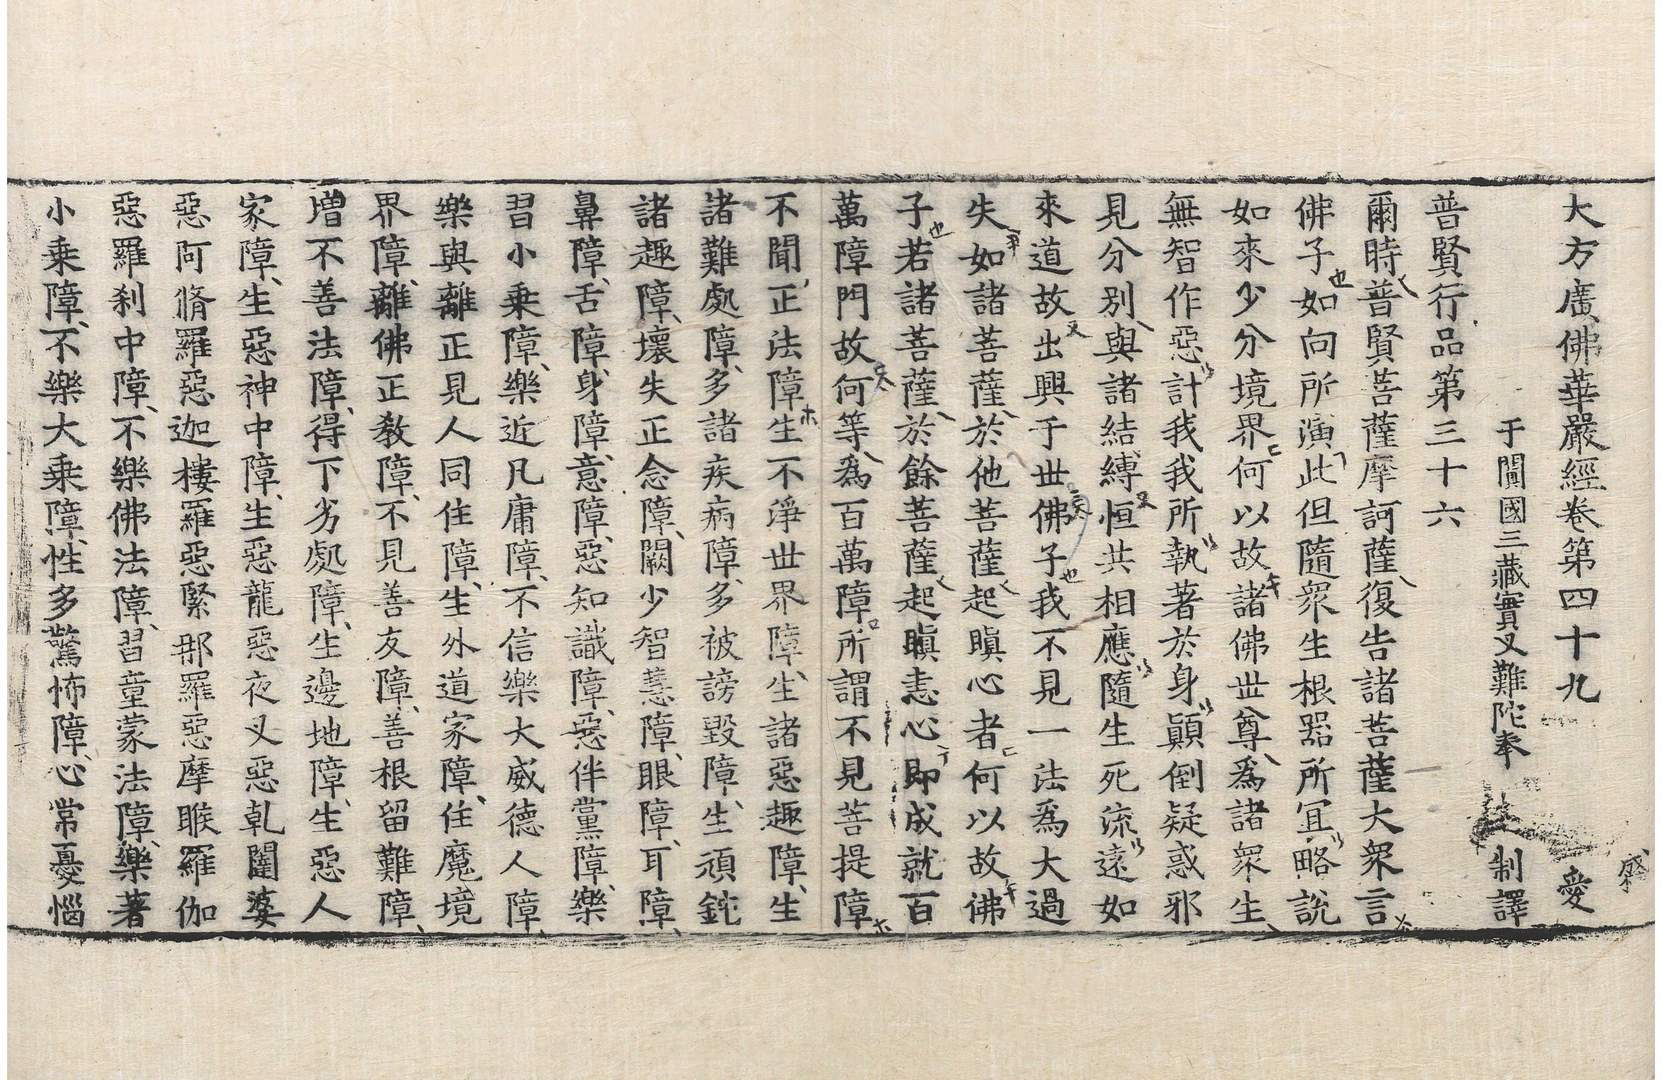 大方廣佛華嚴經卷第四十九 愛
于闐國三藏實叉難陁奉 制譯
普賢行品第三十六
爾時普賢菩薩摩訶薩復告諸菩薩大衆言
佛子如向所演此但隨衆生根器所冝略說
如來少分境界何以故諸佛世尊爲諸衆生
無智作惡計我我所執著於身顚倒疑惑邪
見分別與諸結縛恒共相應隨生死流遠如
來道故出興于世佛子我不見一法爲大過
失如諸菩薩於他菩薩起瞋心者何以故佛
子若諸菩薩於餘菩薩起瞋恚心即成就百
萬障門故何等爲百萬障所謂不見菩提障
不聞正法障生不淨世界障生諸惡趣障生
諸難處障多諸疾病障多被謗毀障生頑鈍
諸趣障壞失正念障闕少智慧障眼障耳障
鼻障舌障身障意障惡知識障惡伴黨障樂
習小乘障樂近凡庸障不信樂大威德人障
樂與離正見人同住障生外道家障住魔境
界障離佛正教障不見善友障善根留難障
增不善法障得下劣處障生邊地障生惡人
家障生惡神中障生惡龍惡夜叉惡乹闥婆
惡阿脩羅惡迦樓羅惡緊那羅惡摩睺羅伽
惡羅刹中障不樂佛法障習童蒙法障樂著
小乘障不樂大乘障性多驚怖障心常憂惱